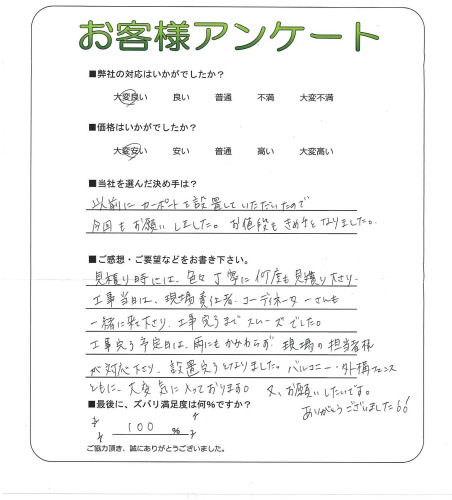 お客様アンケート
■弊社の対応はいかがでしたか？
大変良い　良い　普通　不満　大変不満
■価格はいかがでしたか？
大変安い　安い　普通　高い　大変高い
■当社を選んだ決め手は？
以前にカーポートを設置していただいたので
今回もお願いしました。お値段もきめ手となりました。
■ご感想・ご要望などをお書き下さい。
見積り時には、色々丁寧に何度も見積り下さり、
工事当日は、現場責任者、コーディネーターさんも
一緒に来て下さり、工事完了までスムーズでした。
工事完了予定日は、雨にもかかわらず、現場の担当者様
が対応下さり、設置完了となりました。バルコニー・外構フェンス
ともに、大変気に入っております。又、お願いしたいです。
ありがとうございました!!
■最後に、ズバリ満足度は何％ですか？
100 ％
ご協力頂き、誠にありがとうございました。